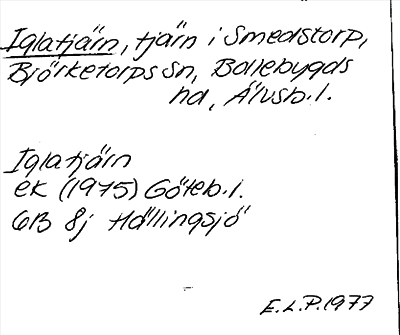 Iglatjärn, tjärn i Smedstorp,
Björketorps sn, Bollebygds
hd, Älvsb. l.
Iglatjärn
ek (1975) Göteb. l.
6B 8j Hällingsjö
E.L.P. 1977